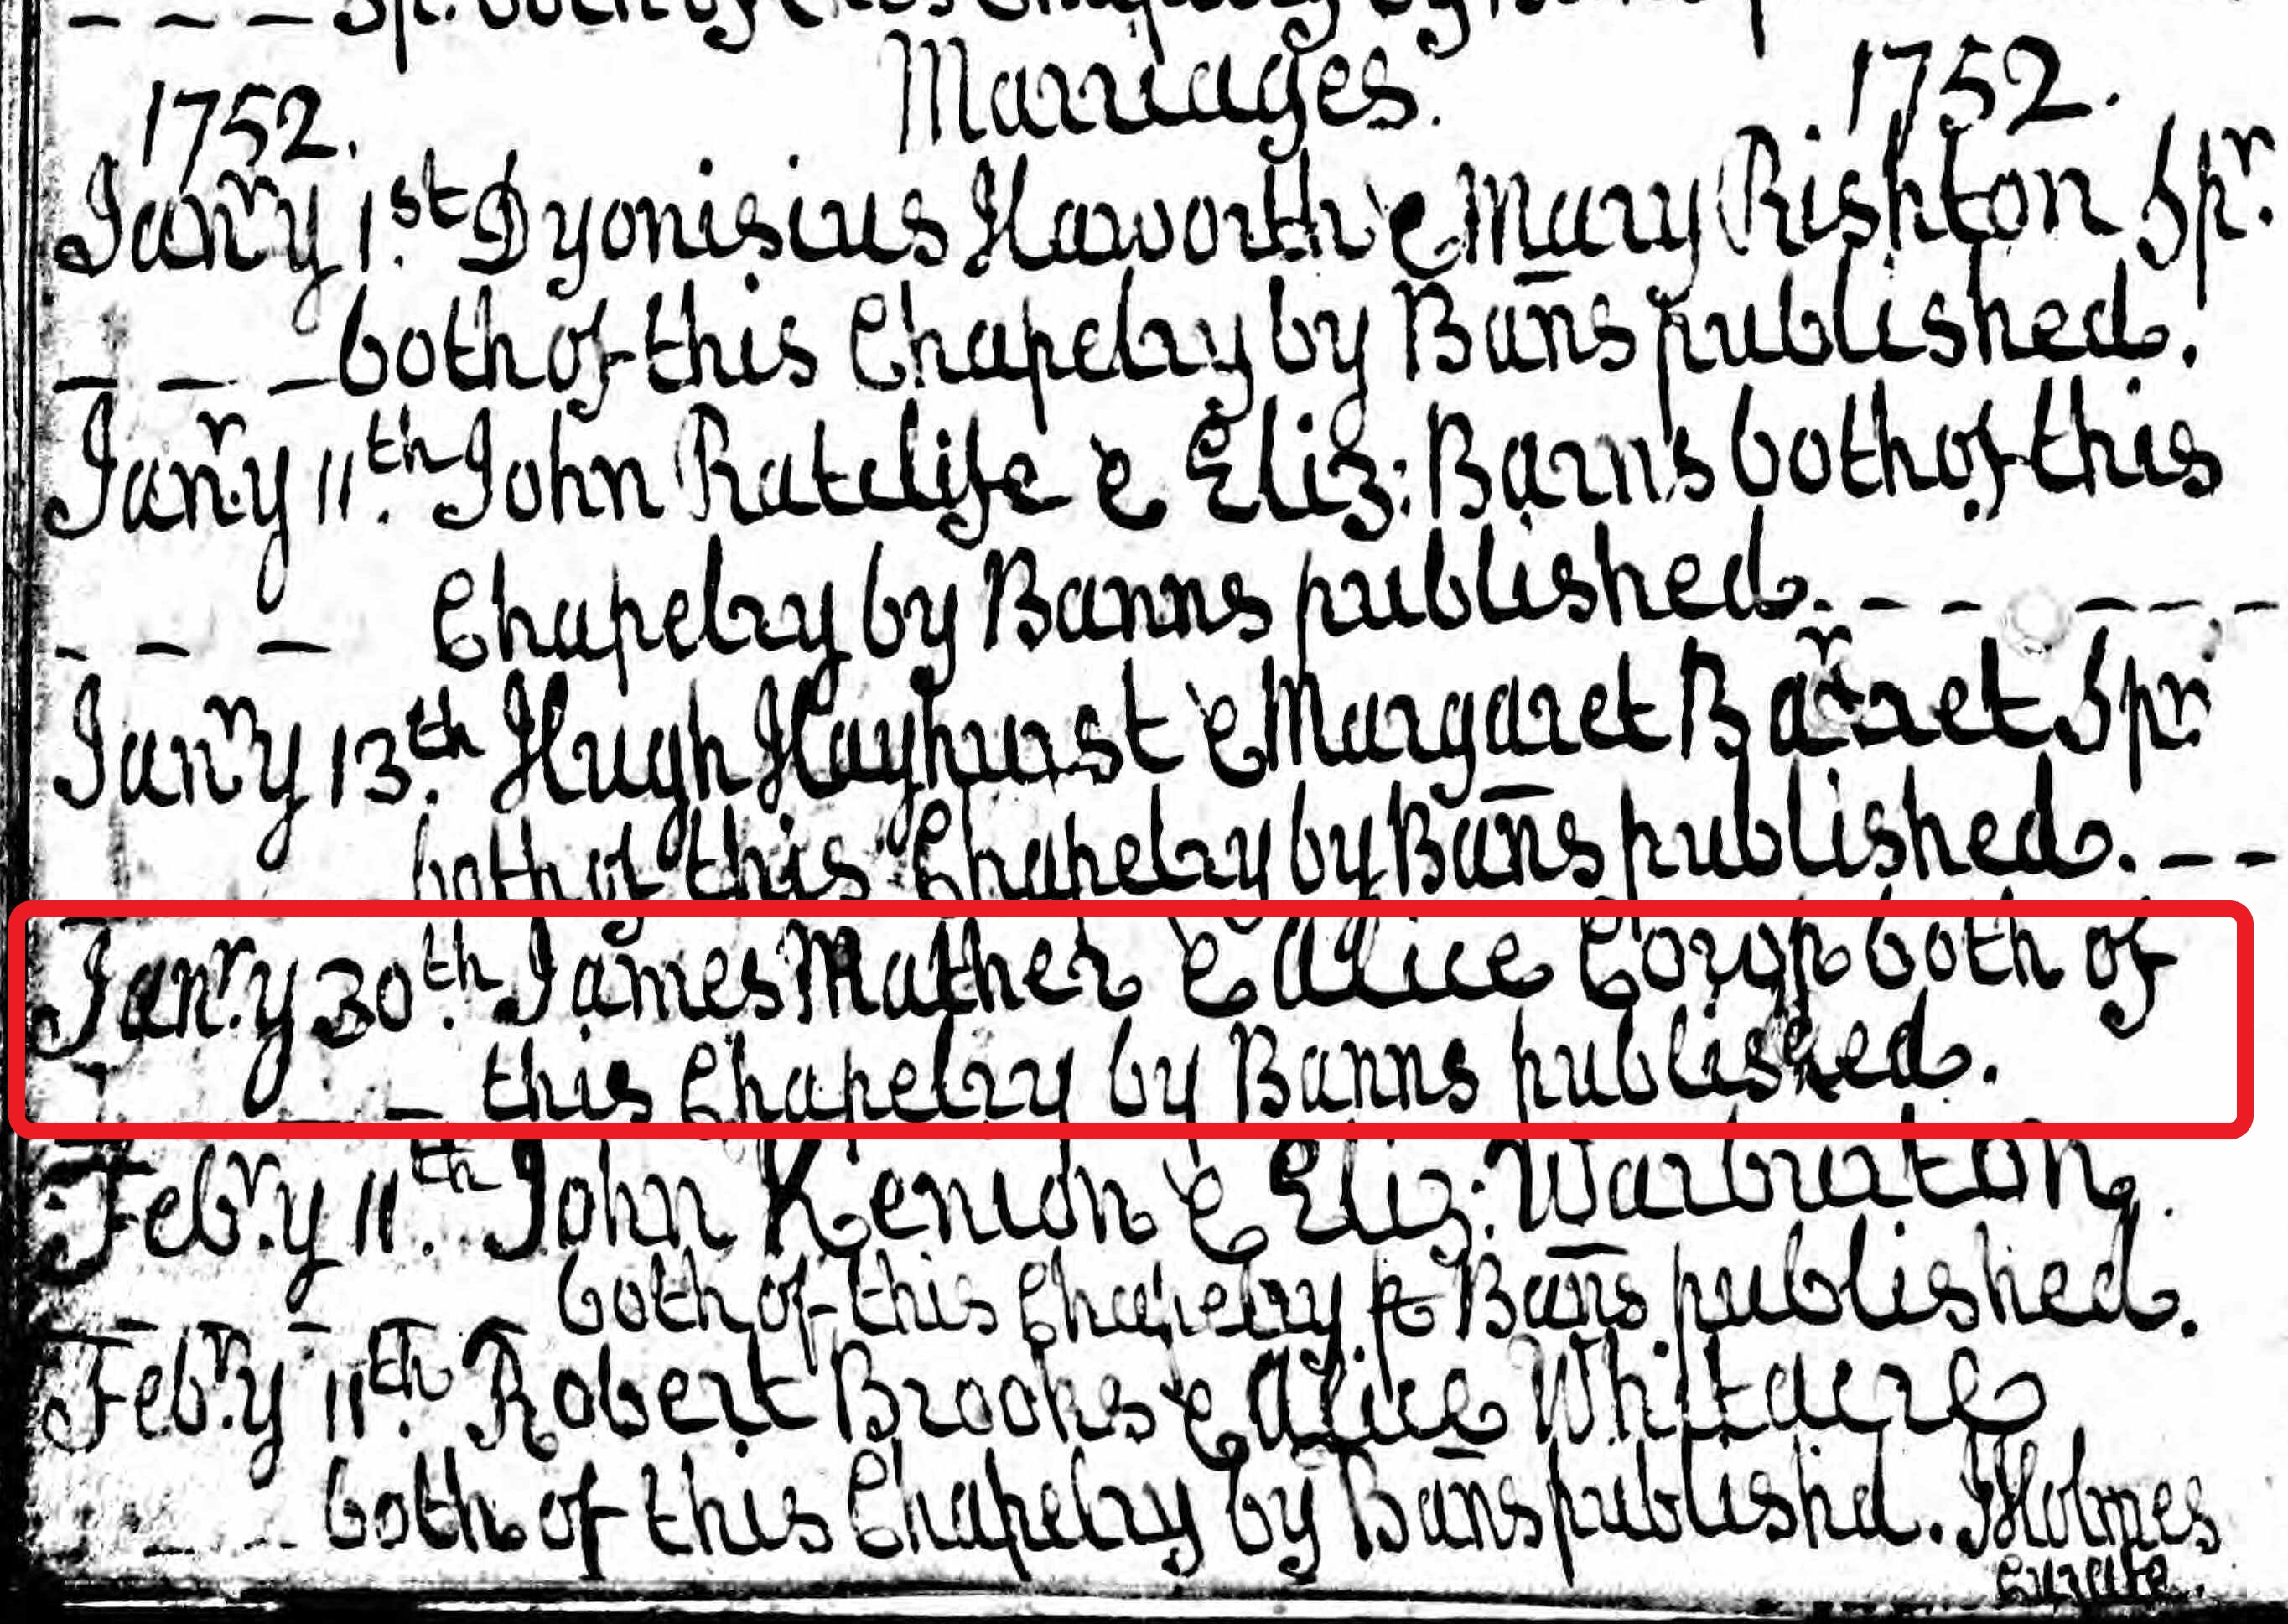 Marriages.
1752. 1752.
Janry 1st. Dyonisius Haworth & Mary Rishton Spr.
– – – both of this Chapelry by Bans published.
Janry 11th. John Ratclife & Eliz: Barns both of this
– – – Chapelry by Banns published. – – – – – –
Janry 13th. Hugh Hayhurst & Margaret Barret Spr
both of this Chapelry by Bans published. – –
Janry 30th. James Mather & Alice both of
– this Chapelry by Banns published.
Febry 11th. John Kenion & Eliz: Warbruton
both of this Chapelry Bans published.
Febry 11th. Robert Brooks & Alice Whitacre
both of this Chapelry by Bans publishd. JHolmes
Curate.